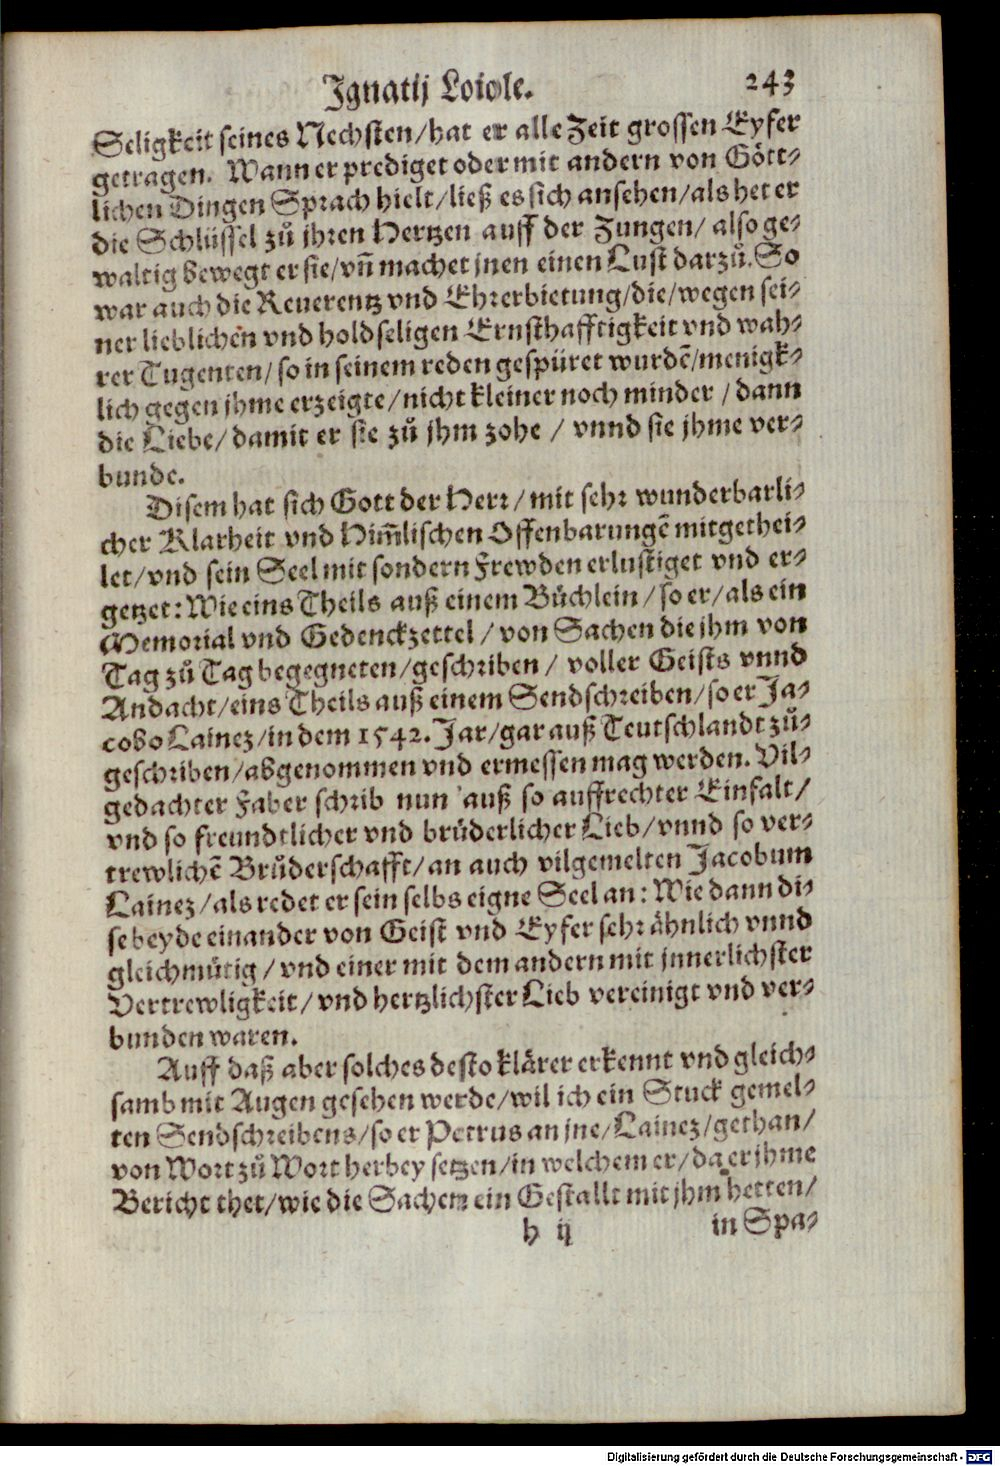 Ignatij Loiole. 243
Seligkeit seines Nechsten/hat er alle Zeit grossen Eyfer
getragen. Wann er prediget oder mit andern von Gött-
lichen Dingen Sprach hielt/ließ es sich ansehen/als het er
die Schlüssel zů jhren Hertzen auff der Zungen/ also ge-
waltig bewegt er sie/vn̄ machet jnen einen Lust darzů. So
war auch die Reuerentz vnd Ehrerbietung/die/wegen sei-
ner lieblichen vnd holdseligen Ernsthafftigkeit vnd wah-
rer Tugenten/so in seinem reden gespüret wurdē/menigk-
lich gegen jhme erzeigte/nicht kleiner noch minder/dann
die Liebe/damit er sie zů jhm zohe / vnnd sie jhme ver-
bunde.
Disem hat sich Gott der Herr/mit sehr wunderbarli-
cher Klarheit vnd Him̄lischen Offenbarungē mitgethei-
let/vnd sein Seel mit sondern Frewden erlustiget vnd er-
getzet: Wie eins Theils auß einem Büchlein/so er/als ein
Memorial vnd Gedenckzettel/von Sachen die jhm von
Tag zů Tag begegneten/geschriben/ voller Geists vnnd
Andacht/eins Theils auß einem Sendschreiben/so er Ja-
cobo Lainez/in dem 1542. Jar/gar auß Teutschlandt zů-
geschriben/abgenommen vnd ermessen mag werden. Vil-
gedachter Faber schrib nun auß so auffrechter Einfalt/
vnd so freundtlicher vnd brüderlicher Lieb/vnnd so ver-
trewlichē Brüderschafft/an auch vilgemelten Jacobum
Lainez/als redet er sein selbs eigne Seel an: Wie dann di-
se beyde einander von Geist vnd Eyfer sehr ähnlich vnnd
gleichmütig/vnd einer mit dem andern mit jnnerlichster
Vertrewligkeit/vnd hertzlichster Lieb vereinigt vnd ver-
bunden waren.
Auff daß aber solches desto klärer erkennt vnd gleich-
samb mit Augen gesehen werde/wil ich ein Stuck gemel-
ten Sendschreibens/so er Petrus an jne/Lainez/gethan/
von Wort zů Wort herbey setzen/in welchem er/da er jhme
Bericht thet/wie die Sachen ein Gestallt mit jhm hetten/
h ij in Spa-
Digitalisierung gefördert durch die Deutsche Forschungsgemeinschaft - DFG